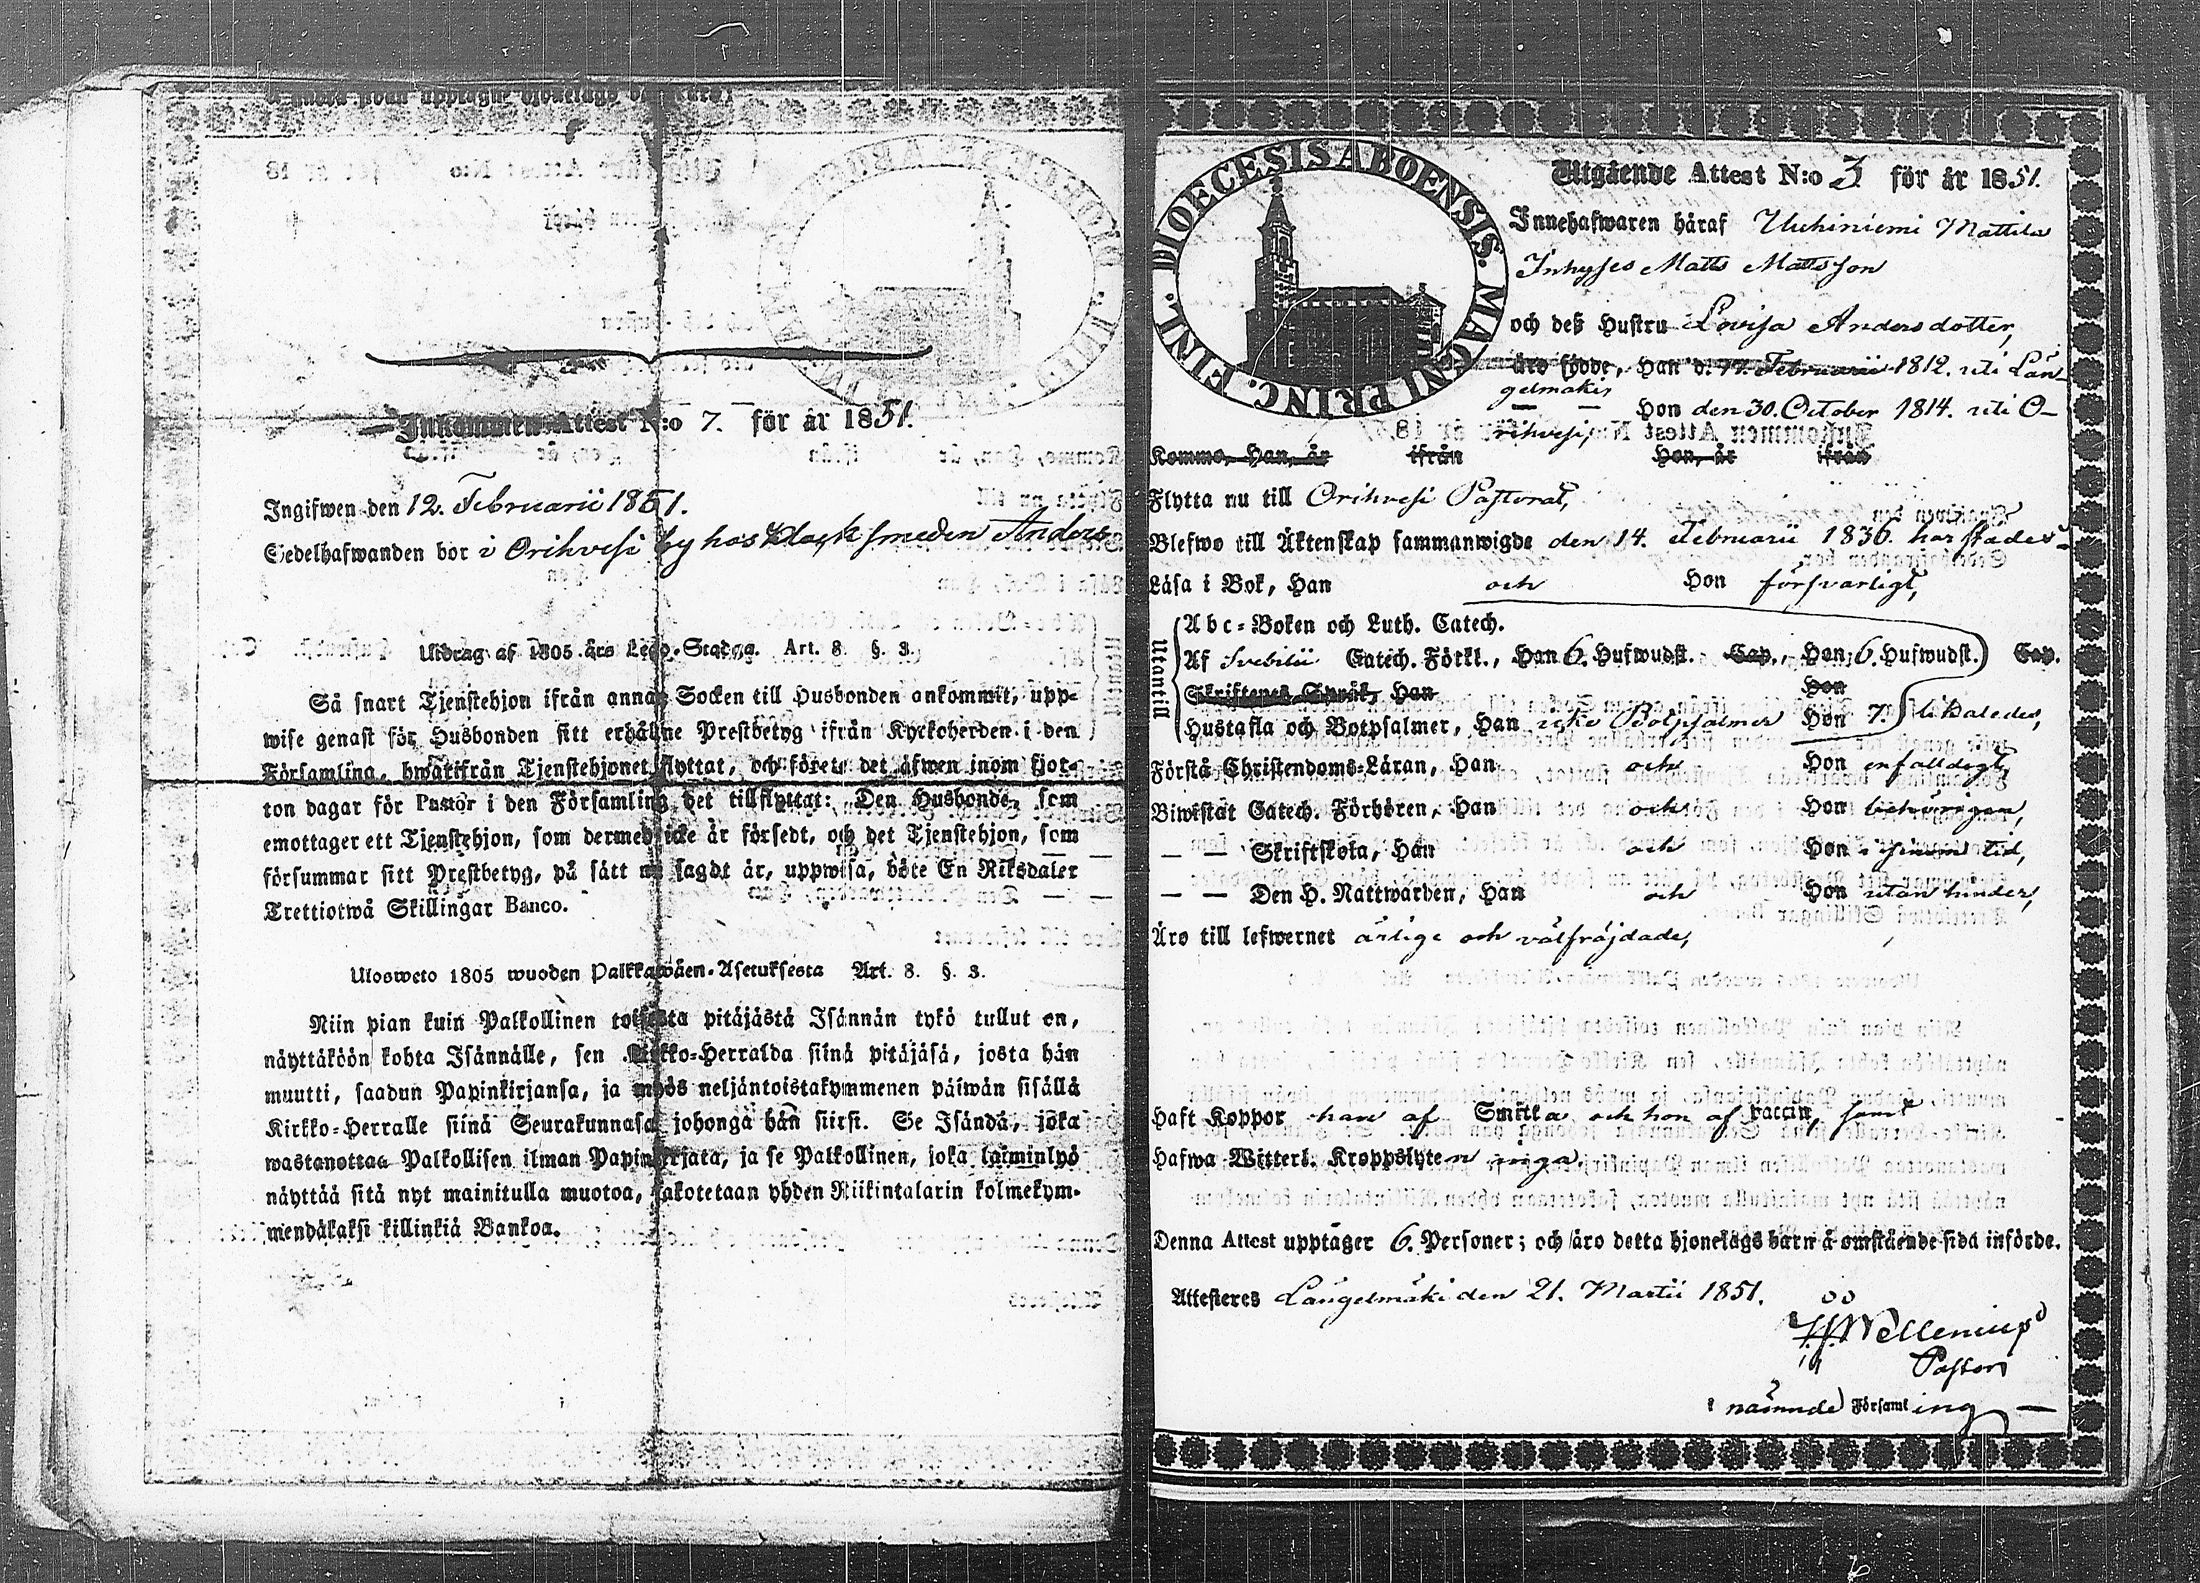 Inkommen Attest N:o 7. för år 1851.
Ingifwen den 12. Februarii 1851.
Sedelhafwanden bor i Orihvesi by hos Klocksmeden Anders
Utdrag af 1805 års Lego-Stadga. Art. 8. §. 3.
Så snart Tjenstehjon ifrån annan Socken till Husbonden ankommit, upp-
wise genast för Husbonden sitt erhållne Prestbetyg ifrån Kyrkoherden i den
Församling, hwarifrån Tjenstehjonet flyttat, och förete det äfwen inom fjor-
ton dagar för Pastor i den Församling det tillflyttat: Den Husbonde, som
emottager ett Tjenstehjon, som dermed icke är försedt, och det Tjenstehjon, som
försummar sitt Prestbetyg, på sätt nu sagdt är, uppwisa, böte En Riksdaler
Trettiotwå Skillingar Banco.
Ulosweto 1805 wuoden Palkkawäen-Asetuksesta Art. 8. §. 3.
Niin pian kuin Palkollinen toisesta pitäjästä Isännän tykö tullut on,
näyttäköön kohta Isännälle, sen Kirkko-Herralda siinä pitäjäsä, josta hän
muutti, saadun Papinkirjansa, ja myös neljäntoistakymmenen päiwän sisällä
Kirkko-Herralle siinä Seurakunnasa johonga hän siirsi. Se Isändä, joka
wastanottaa Palkollisen ilman Papinkirjata, ja se Palkollinen, joka laiminlyö
näyttää sitä nyt mainitulla muotoa, sakotetaan yhden Riikintalarin kolmekym-
mendäkaksi killinkiä Bankoa.
DIOECESIS ABOENSIS. MAGNI PRINC. FINL.
Utgående Attest N:o 3. för år 1851.
Innehafwaren häraf Uuhiniemi Mattila
Inhyses Matts Mattsson
och deß Hustru Lovisa Andersdotter,
äro födde, Han d. 17. Februarii 1812. uti Län-
gelmäki,
— — Hon den 30. October 1814. uti O-
rihvesi,
Komme, Han, år ifrån Hon, år ifrån
Flytta nu till Orihvesi Pastorat,
Blefwo till Äktenskap sammanwigde den 14. Februarii 1836.
Läsa i Bok, Han och Hon försvarligt,
Utantill
Abc-Boken och Luth. Catech.
Af Svebilii Catech. Förkl., Han 6. Hufwudst. Cap., Hon 6. Hufwudst. Cap.
Skriftenes Språk, Han Hon
Hustafla och Botpsalmer, Han icke Botpsalmer Hon 7. likaledes,
Förstå Christendoms-Läran, Han och Hon enfaldigt,
Biwistat Catech. Förhören, Han och Hon behörigen,
— — Skriftskola, Han och Hon i sinom tid,
— — Den H. Nattwarden, Han och Hon utan hinder,
Äro till lefwernet ärlige och välfräjdade,
Haft Koppor han af Smitta och hon af vaccin, samt
Hafwa Witterl. Kroppslyten inga.
Denna Attest upptager 6. Personer; och äro detta hjonelags barn å omstående sida införde.
Attesteres Längelmäki den 21. Martii 1851.
Wellenius
Pastor
i nämnde Församling —